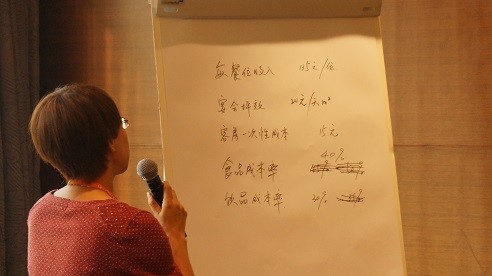 每餐位收入 115元/位
宴会坪效 20元/天m²
客房一次性成本 15元
食品成本率 40%
饮品成本率 20%